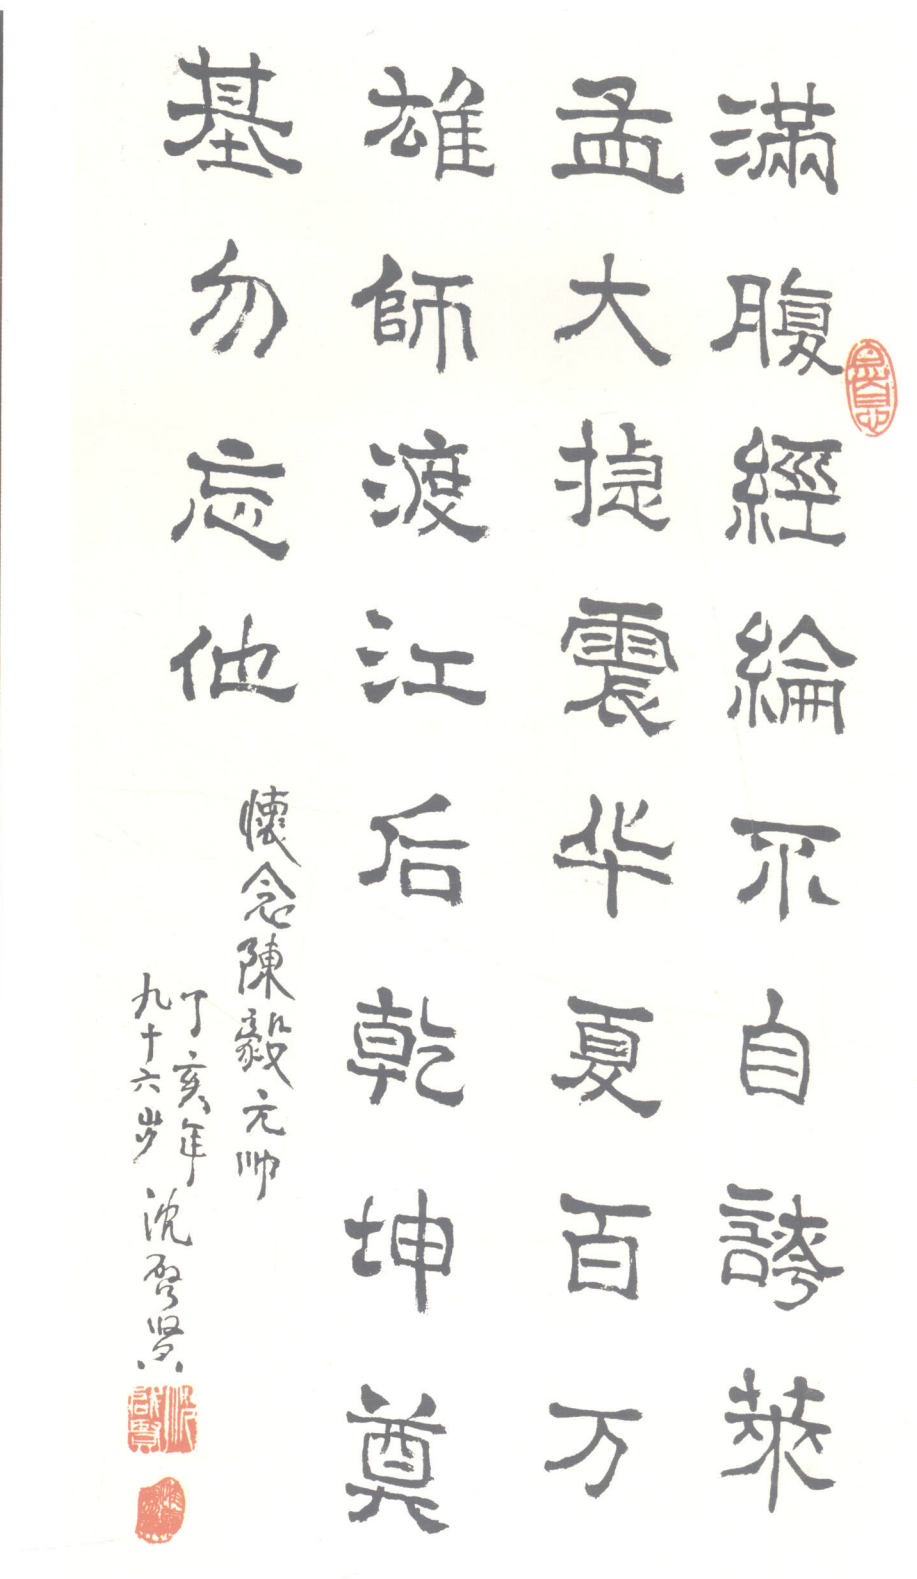 滿腹經綸不自誇萊
孟大捷震华夏百万
雄師渡江后乾坤奠
基勿忘他
懷念陳毅元帅
丁亥年
九十六岁
沈启贤
沈啟賢